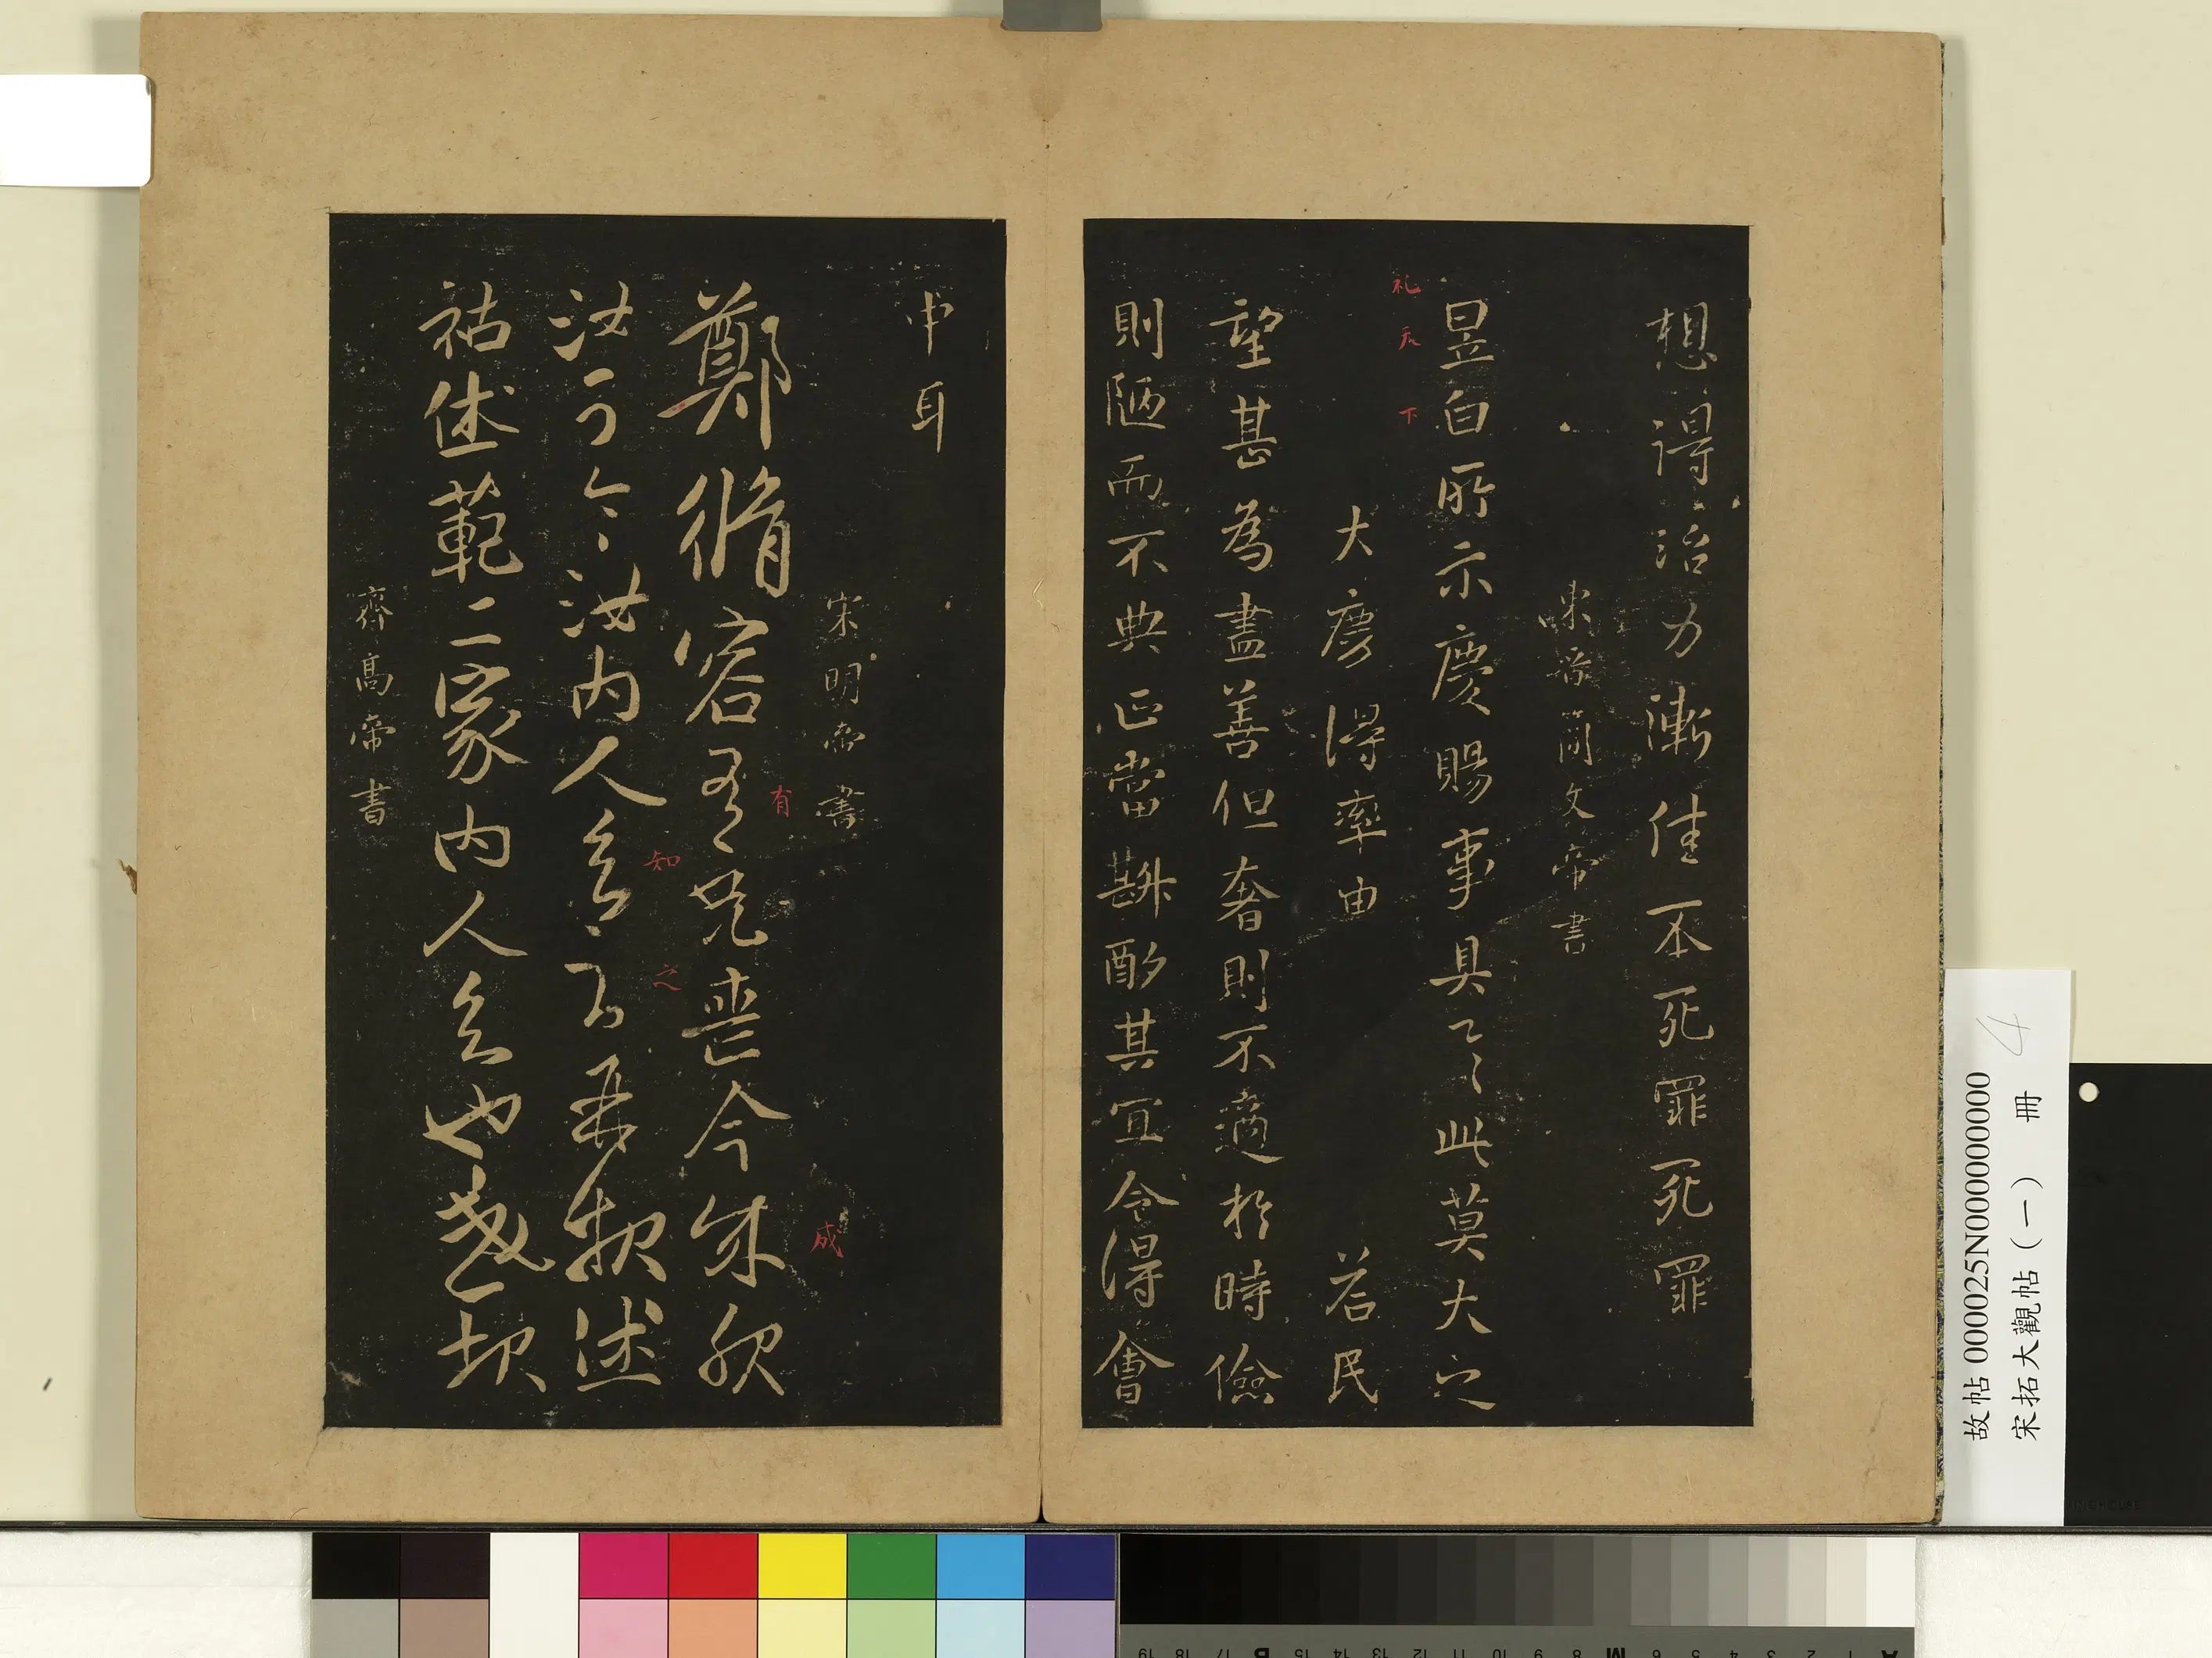 想得治力漸佳不死罪死罪
東晉簡文帝書
昱白所示慶賜事具之此莫大之
礼 天 下
大慶得率由 若民
望甚為盡善但奢則不適於時儉
則陋而不典正當斟酌其宜令得會
中耳
宋明帝書
鄭脩容 兄喪今成服
有
成
汝可 汝內人 吾 述
知
之
祜 範二家內人 也
齊高帝書
故帖 000025N000000000
宋拓大觀帖(一) 冊
4